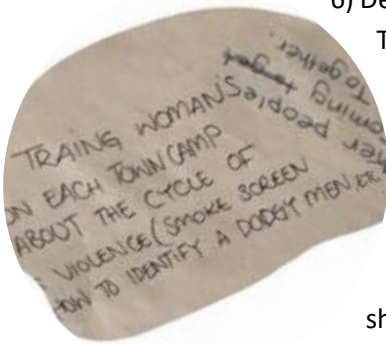 6) De
T
TRAING WOMAN'S
ON EACH TOWN CAMP
ABOUT THE CYCLE OF
VIOLENCE (SMOKE SCREEN
HOW TO IDENTIFY A DODGY MEN, OR
people
Together.
sh